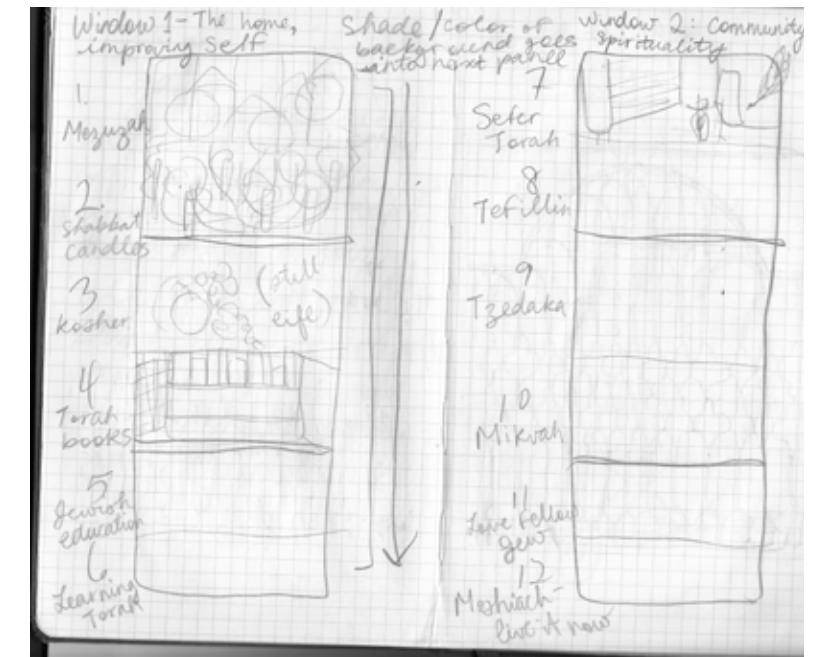 Window 1 - The home,
improving Self
1.
Mezuzah
2.
Shabbat
candles
3
Kosher
(still
life)
4
Torah
books
5
Jewish
education
6
Learning
Torah
Shade/color of
background goes
into next panel
Window 2: Community
spirituality
7
Sefer
Torah
8
Tefillin
9
Tzedaka
10
Mikvah
11
Love fellow
Jew
12
Moshiach-
live it now